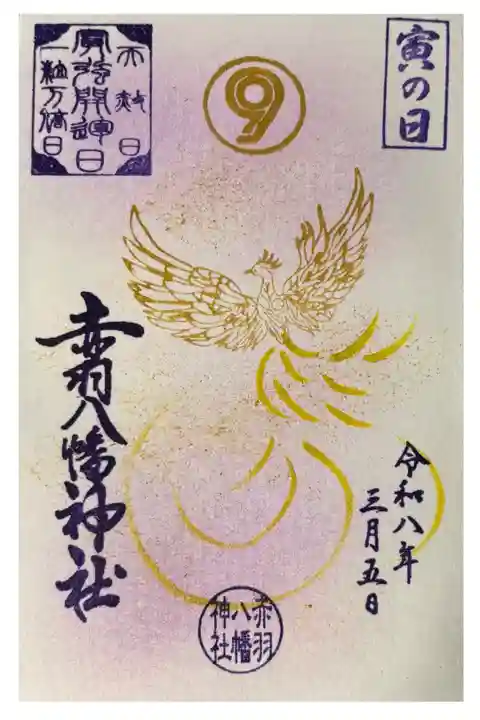 寅の日
9
天赦日
最強開運日
一粒万倍日
赤羽八幡神社
令和八年
三月五日
赤羽
八幡
神社